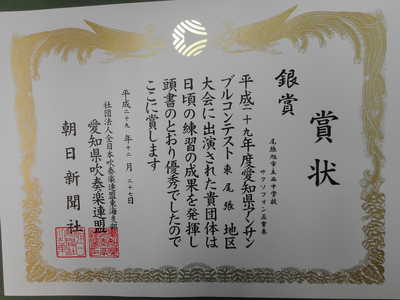 賞状
銀賞
尾張旭市立西中学校
サクソフォン五重奏
平成二十九年度愛知県アンサン
ブルコンテスト東尾張地区
大会に出演された貴団体は
日頃の練習の成果を発揮し
頭書のとおり優秀でしたので
ここに賞します
平成二十九年十二月二十七日
社団法人全日本吹奏楽連盟東海支部
愛知県吹奏楽連盟
朝日新聞社